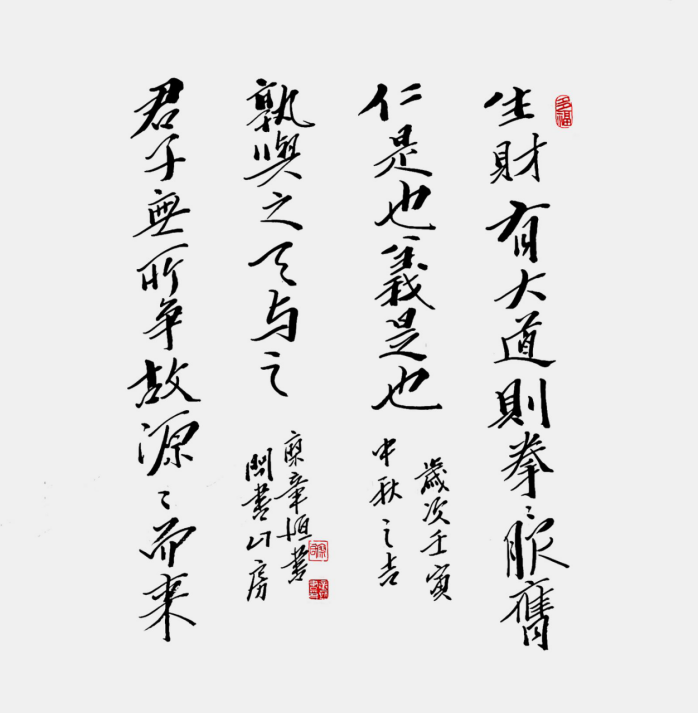 多福
生財有大道則拳〻服膺
仁是也義是也
歲次壬寅
中秋之吉
君子無所争故源〻而来
孰與之天与之
章恒書
書山房